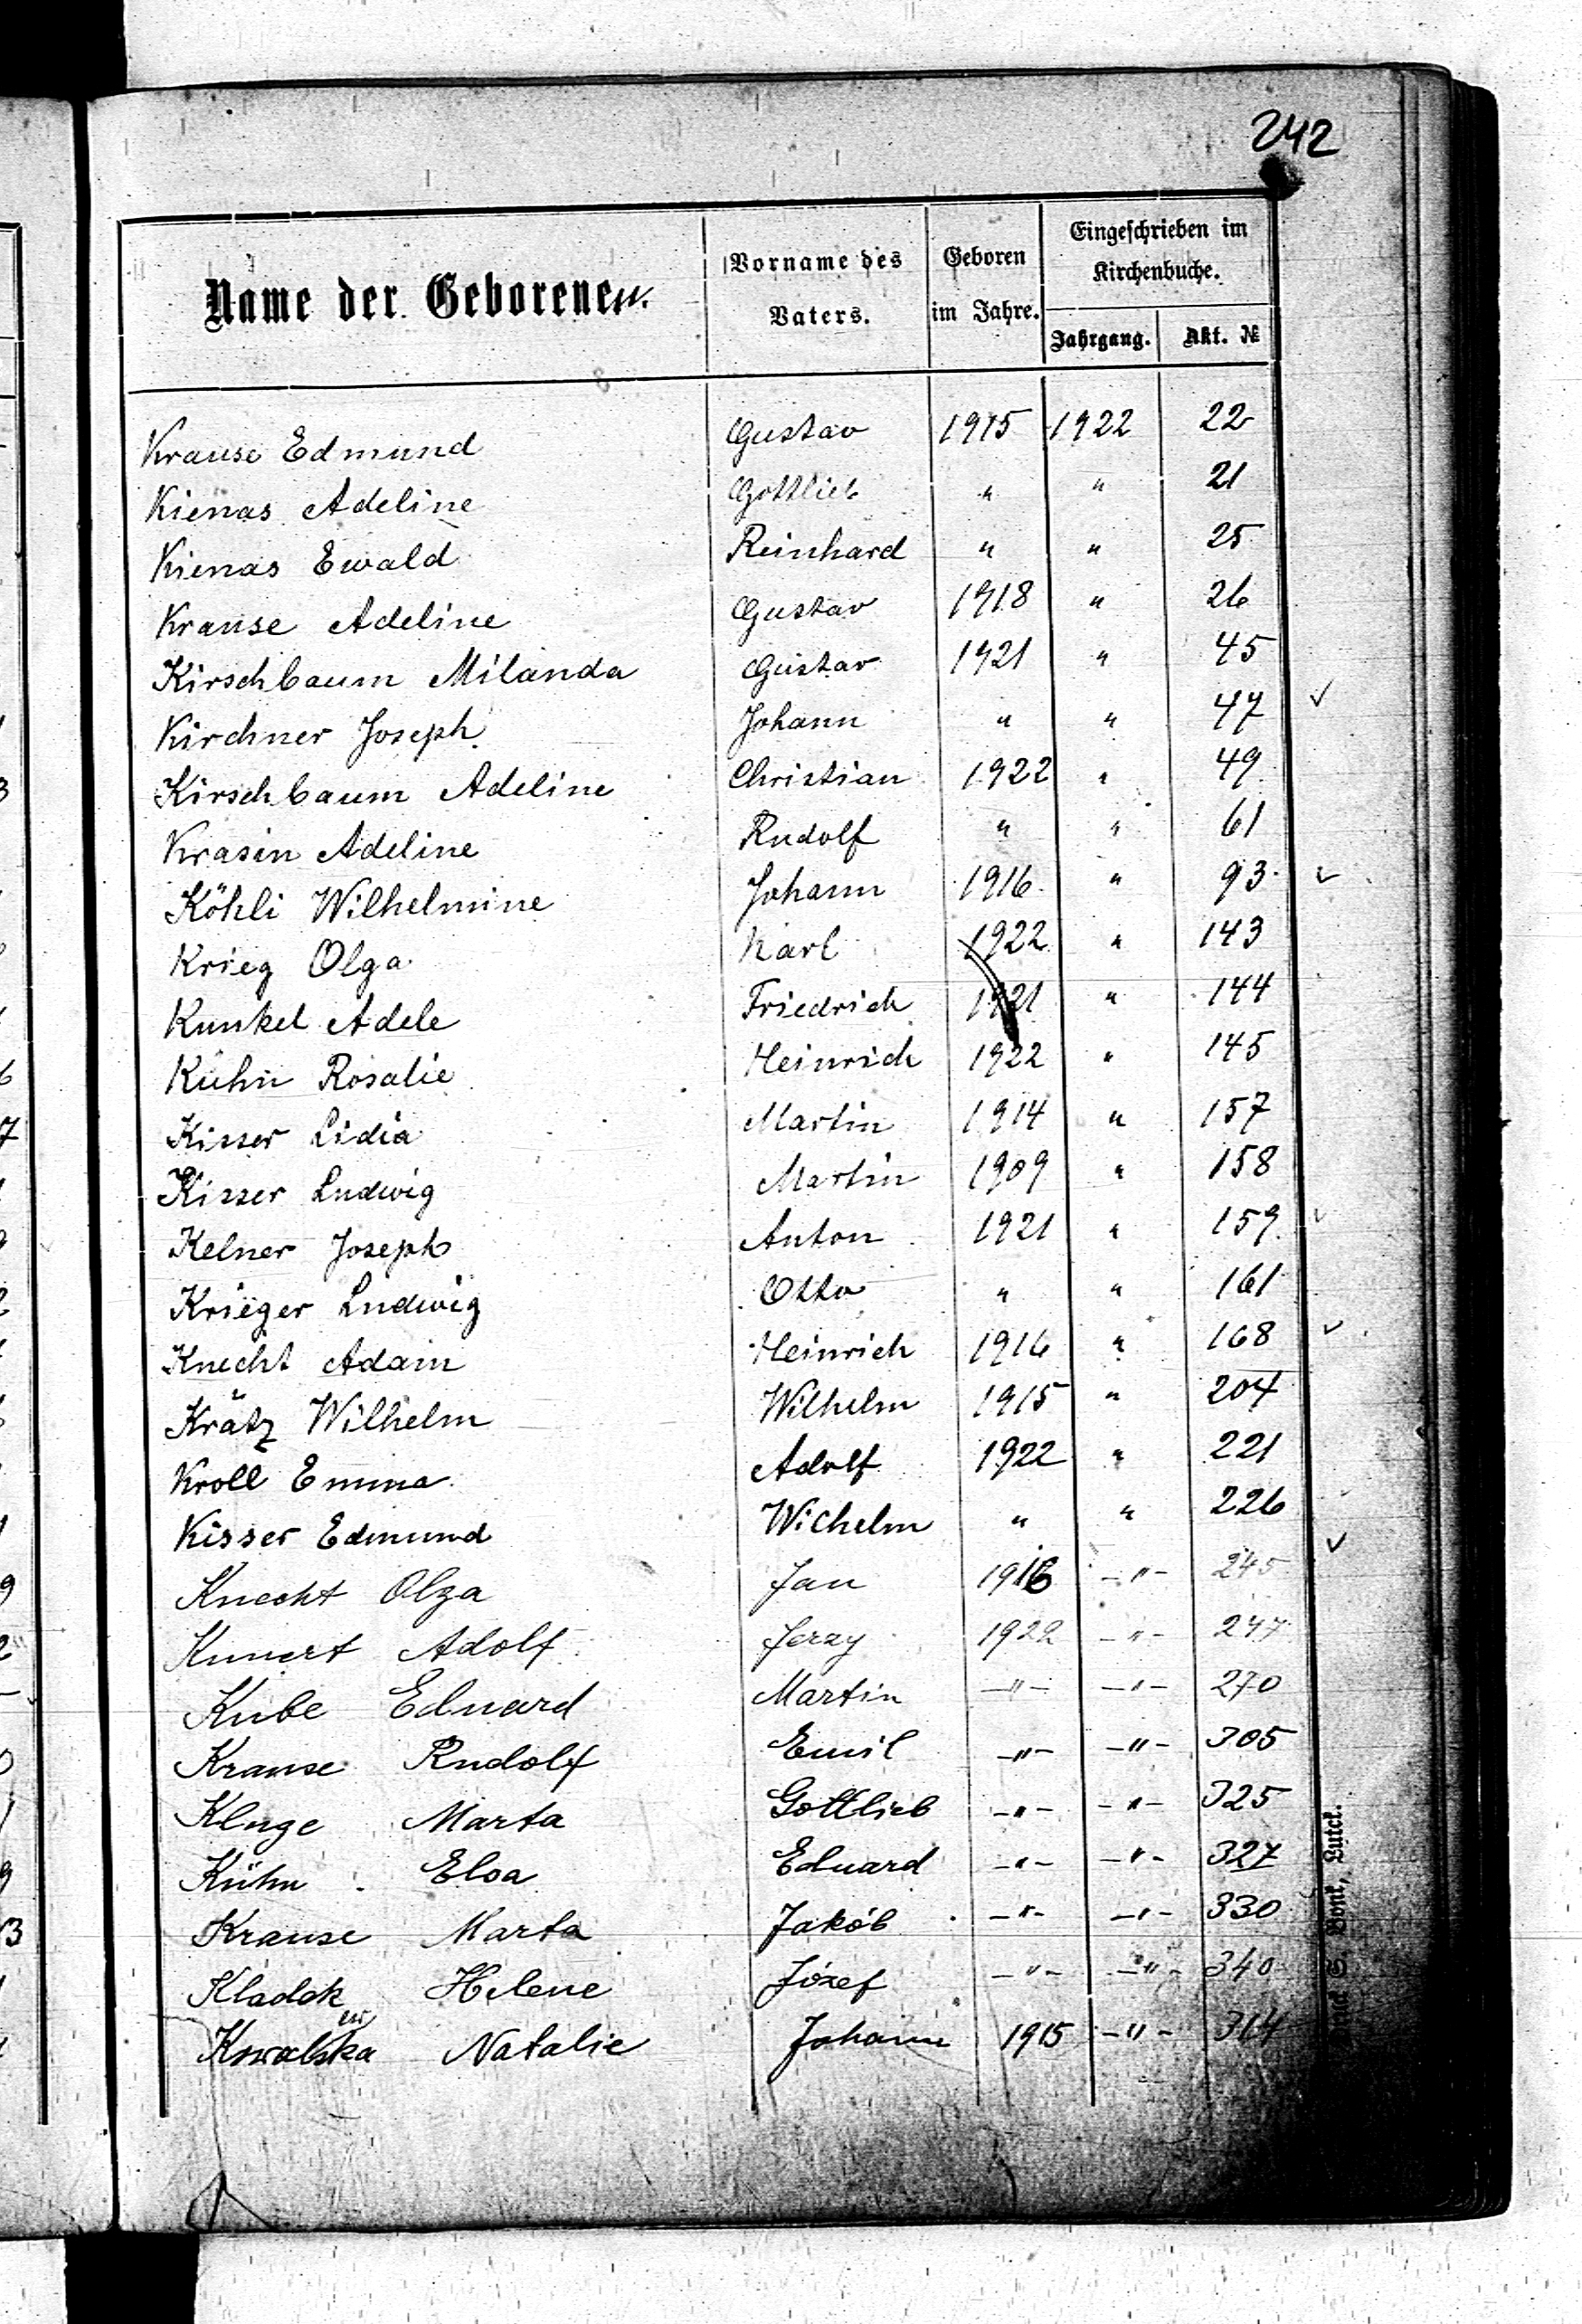 242
Name der Geborenen.
Vorname des Vaters.
Geboren im Jahre.
Eingeschrieben im Kirchenbuche.
Jahrgang.
Akt. №
Krause Edmund Gustav 1915 1922 22
Kienas Adeline Gottlieb " " 21
Kienas Ewald Reinhard " " 25
Krause Adeline Gustav 1918 " 26
Kirschbaum Milanda Gustav 1921 " 45
Kirchner Joseph Johann " " 47 ✓
Kirschbaum Adeline Christian 1922 " 49
Krasin Adeline Rudolf " " 61
Köhli Wilhelmine Johann 1916 " 93 ✓
Krieg Olga Karl 1922 " 143
Kunkel Adele Friedrich 1921 " 144
Kühn Rosalie Heinrich 1922 " 145
Kisser Lidia Martin 1914 " 157
Kisser Ludwig Martin 1909 " 158
Kelner Joseph Anton 1921 " 159 ✓
Krieger Ludwig Otto " " 161
Knecht Adam Heinrich 1916 " 168 ✓
Krätz Wilhelm Wilhelm 1915 " 204
Kroll Emma Adolf 1922 " 221
Kisser Edmund Wilhelm " " 226
Knecht Olga Jan 1916 -"- 245 ✓
Kunert Adolf Jerzy 1922 -"- 247
Kube Eduard Martin -"- -"- 270
Krause Rudolf Emil -"- -"- 305
Kluge Marta Gottlieb -"- -"- 325
Kühn Eloa Eduard -"- -"- 327
Krause Marta Jakób -"- -"- 330
Kladok Helene Józef -"- -"- 340
Kowalska Natalie Johann 1915 -"- 314
Lutck.